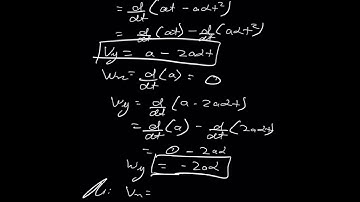 = d/dt (at - aαt²)
= d/dt (at) - d/dt (aαt²)
Vy = a - 2aαt
Wx = d/dt (a) = 0
Wy = d/dt (a - 2aαt)
= d/dt (a) - d/dt (2aαt)
= 0 - 2aα
Wy = - 2aα
Vx =